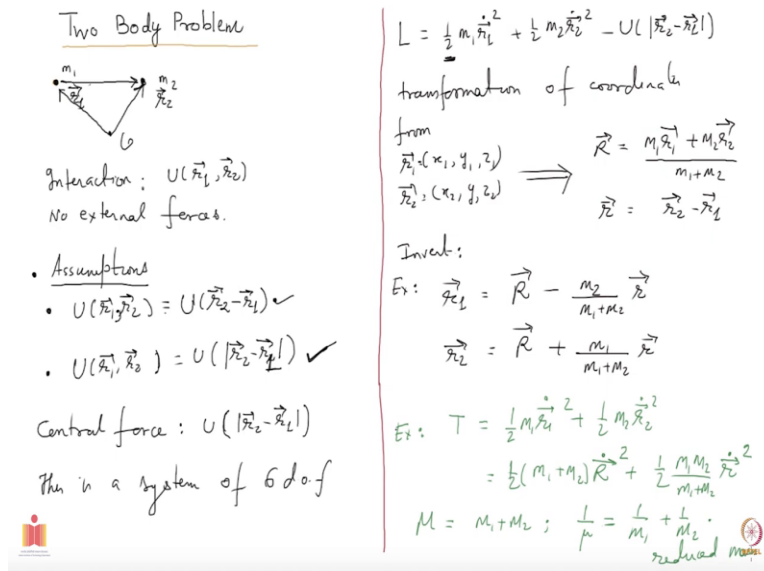 Two Body Problem
m₁ m₂
r⃗₁ r⃗₂
O
Interaction: U(r⃗₁, r⃗₂)
No external forces.
• Assumptions
• U(r⃗₁, r⃗₂) = U(r⃗₂ - r⃗₁) ✓
• U(r⃗₁, r⃗₂) = U(|r⃗₂ - r⃗₁|) ✓
Central force: U(|r⃗₂ - r⃗₁|)
This is a system of 6 d.o.f
L = 1/2 m₁ ṙ⃗₁² + 1/2 m₂ ṙ⃗₂² - U(|r⃗₂ - r⃗₁|)
transformation of coordinates
from
r⃗₁ = (x₁, y₁, z₁) ⟹ R⃗ = (m₁r⃗₁ + m₂r⃗₂)/(m₁+m₂)
r⃗₂ = (x₂, y₂, z₂) r⃗ = r⃗₂ - r⃗₁
Invert:
Ex: r⃗₁ = R⃗ - m₂/(m₁+m₂) r⃗
r⃗₂ = R⃗ + m₁/(m₁+m₂) r⃗
Ex: T = 1/2 m₁ ṙ⃗₁² + 1/2 m₂ ṙ⃗₂²
= 1/2 (m₁+m₂) Ṙ⃗² + 1/2 m₁m₂/(m₁+m₂) ṙ⃗²
M = m₁+m₂ ; 1/μ = 1/m₁ + 1/m₂ .
reduced